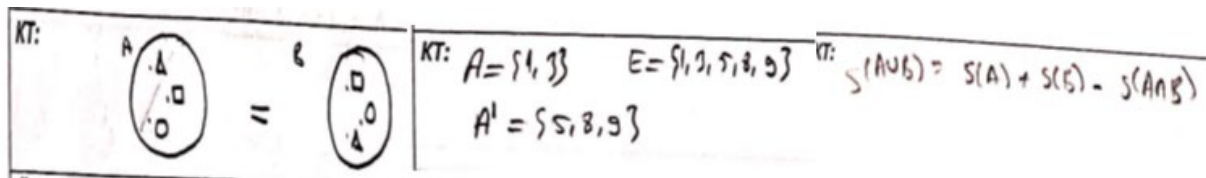 KT:
A = B
KT: A = {1, 3} E = {1, 3, 5, 8, 9}
A' = {5, 8, 9}
KT: S(A∪B) = S(A) + S(B) - S(A∩B)